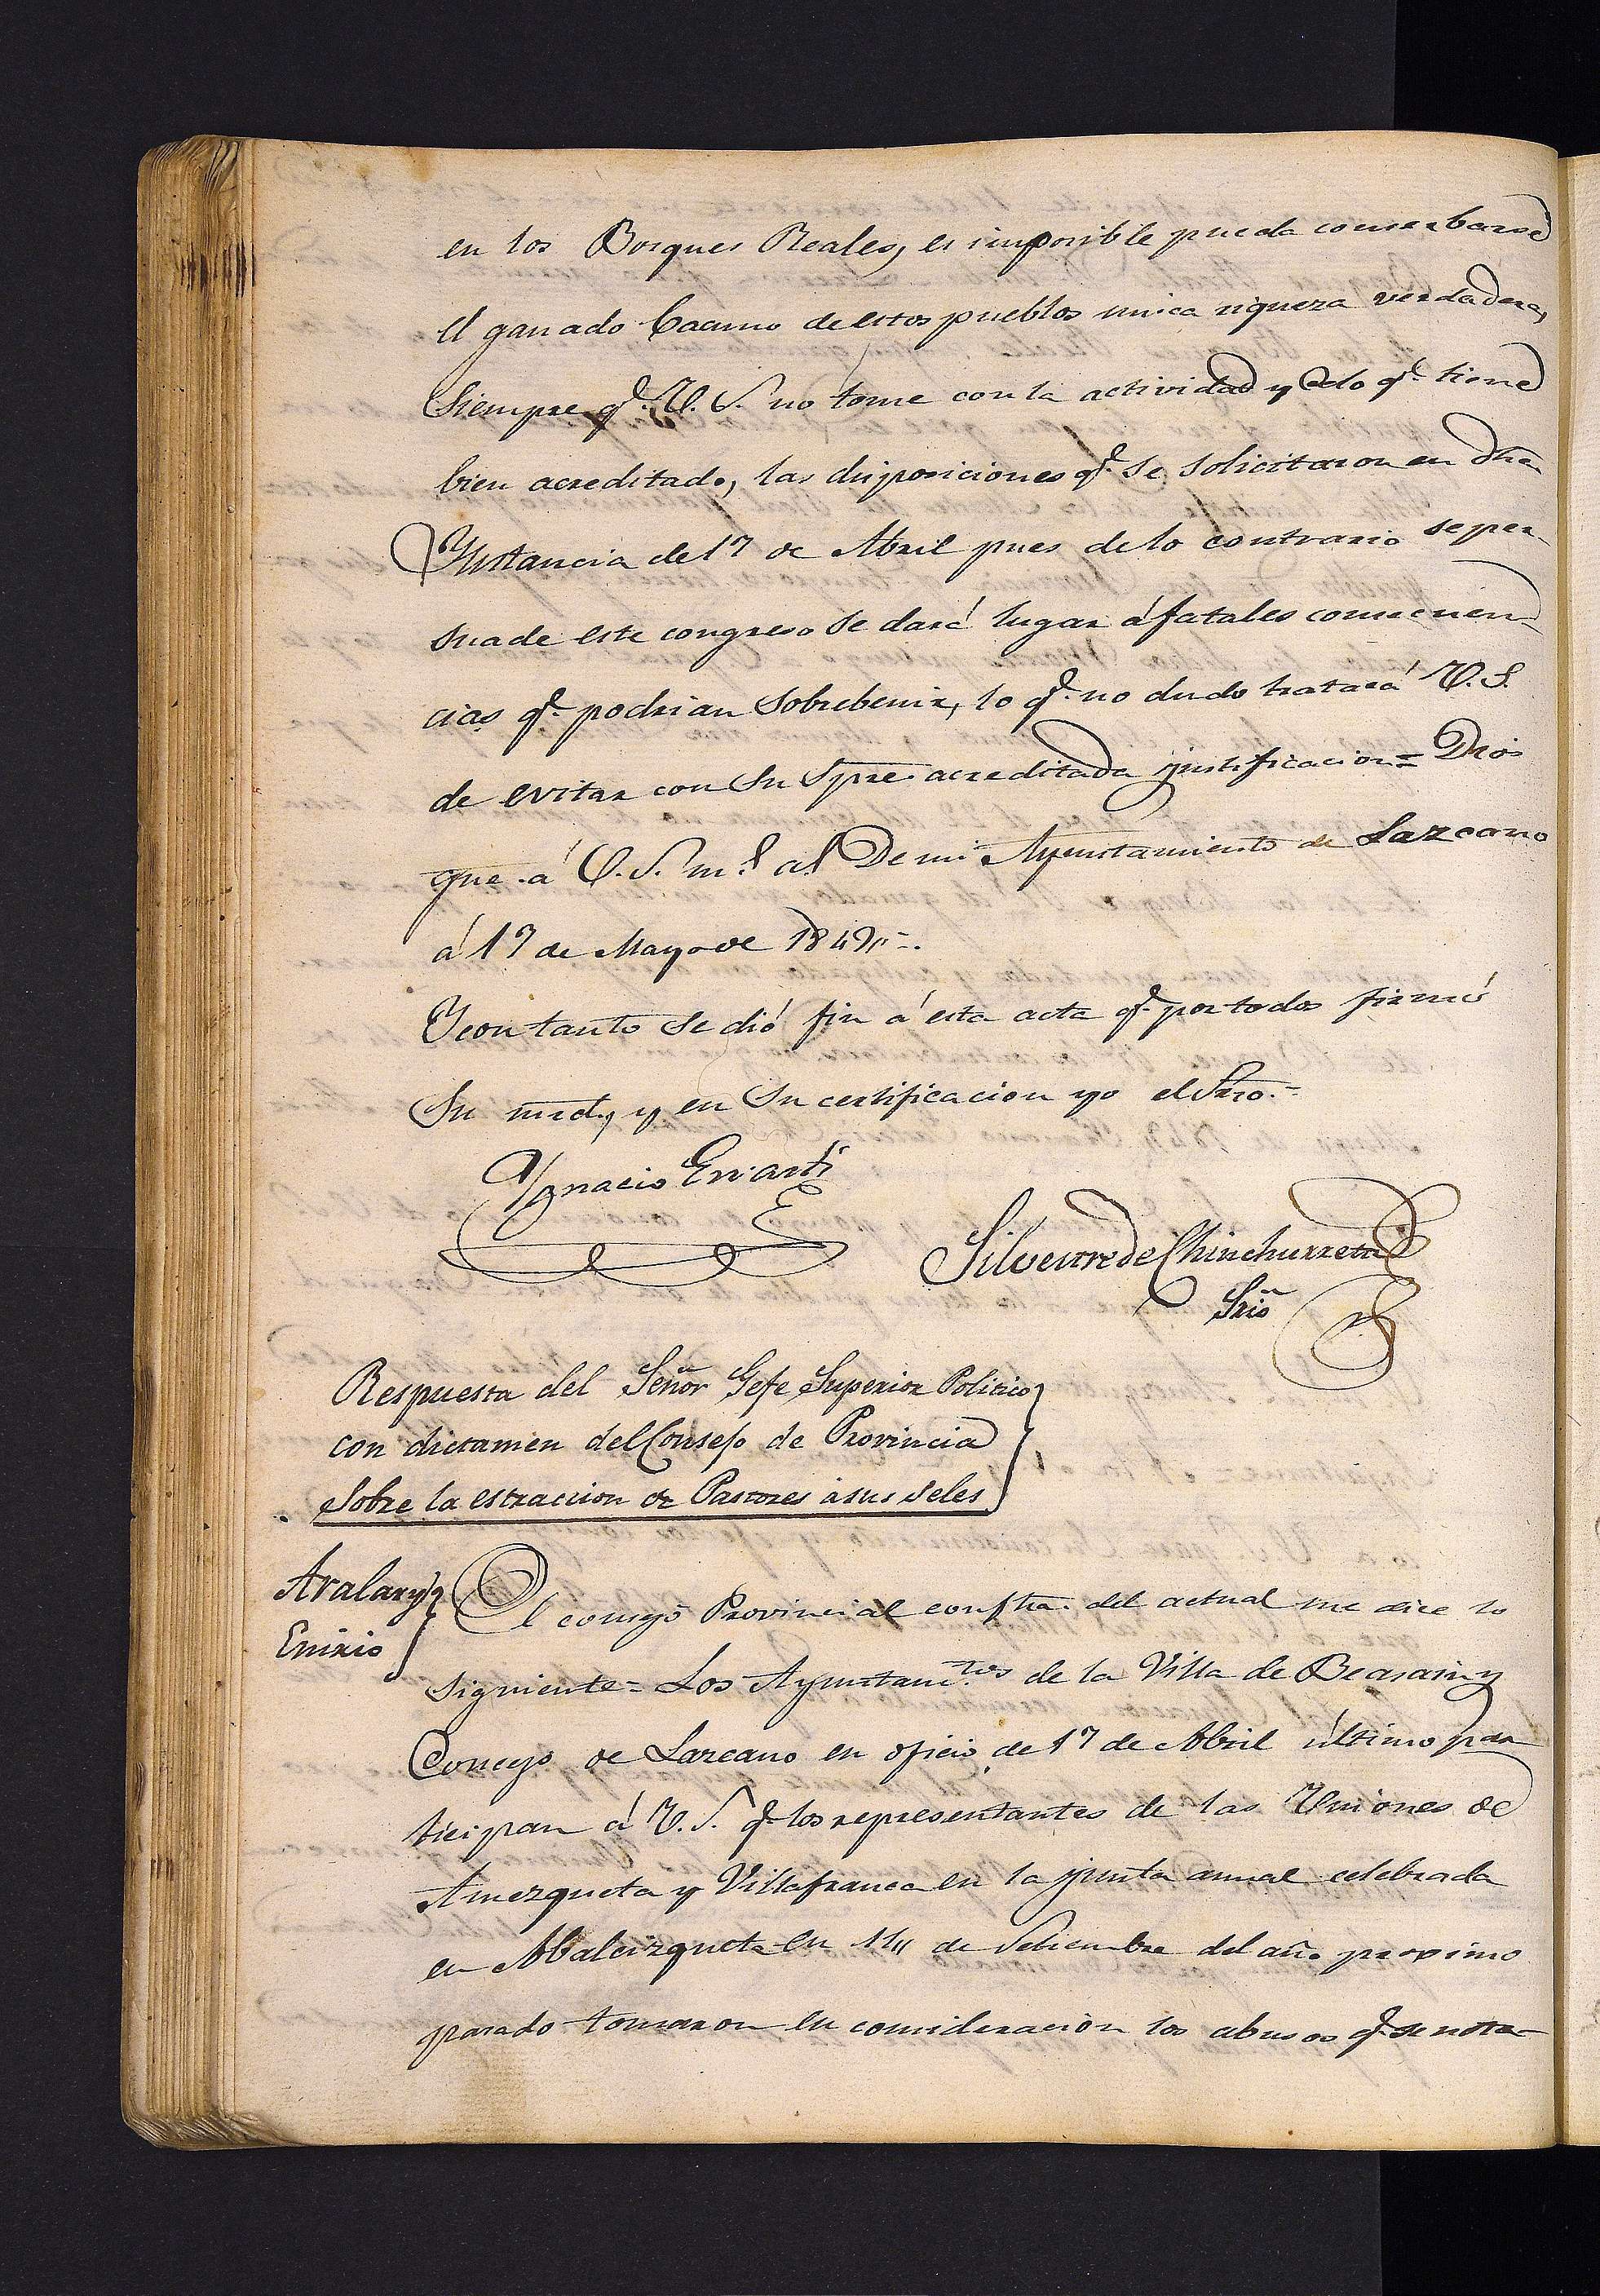 en los Bosques Reales, es imposible pueda conserbarse
el ganado bacuno de estos pueblos unica riqueza verdadera,
siempre q.e V. S. no tome con la actividad y celo q.e tiene
bien acreditado, las disposiciones q.e se solicitaron en dha
Ynstancia de 17 de Abril pues de lo contrario se per-
suade este congreso se dará lugar á fatales consecuen-
cias q.e podrian sobrebenir, lo q.e no dudo tratará V. S.
de evitar con su spre acreditada justificacion = Dios
gue á V. S. m.s a.s De mi Ayuntamiento de Lazcano
á 17 de Mayo de 1849 =.
Y con tanto se dió fin á esta acta q.e por todos firmó
Su mrd, y en su certificacion yo el Srio. =
Ygnacio Eriarti
Silvestre de Chinchurreta
Srio
Respuesta del Señor Gefe Superior Politico
con dictamen del Consejo de Provincia
sobre la estraccion de Pastores á sus seles
Aralar y
Enirio
El consejo Provincial con fha. del actual me dice lo
siguiente = Los Ayuntam.tos de la Villa de Beasain y
Concejo de Lazcano en oficio de 17 de Abril último par
ticipan á V. S. q.e los representantes de las Uniones de
Amezqueta y Villafranca en la junta anual celebrada
en Abalcizqueta en 11 de Setiembre del año proximo
pasado tomaron en consideracion los abusos q.e se nota-